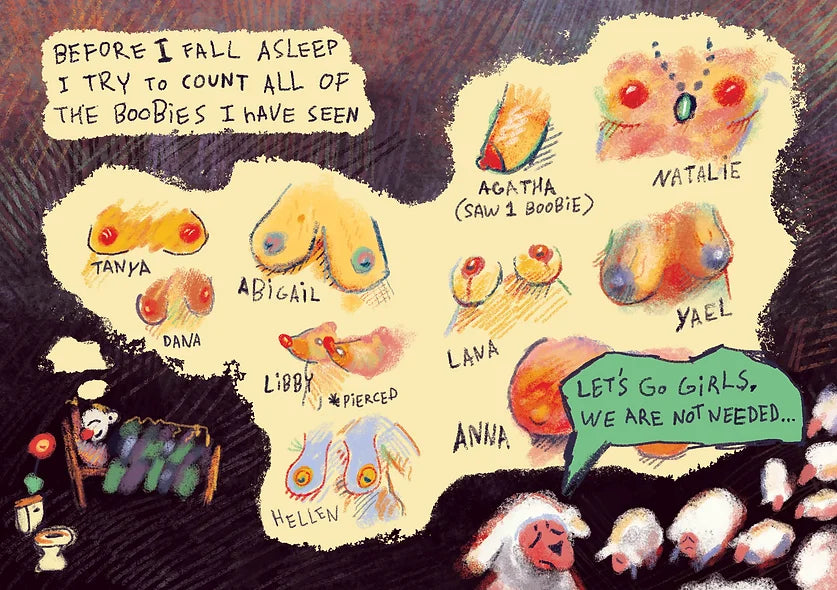 BEFORE I FALL ASLEEP
I TRY TO COUNT ALL OF
THE BOOBIES I HAVE SEEN
AGATHA
(SAW 1 BOOBIE)
NATALIE
TANYA
ABIGAIL
DANA
LANA
YAEL
LIBBY
*PIERCED
ANNA
HELLEN
LET'S GO GIRLS,
WE ARE NOT NEEDED...